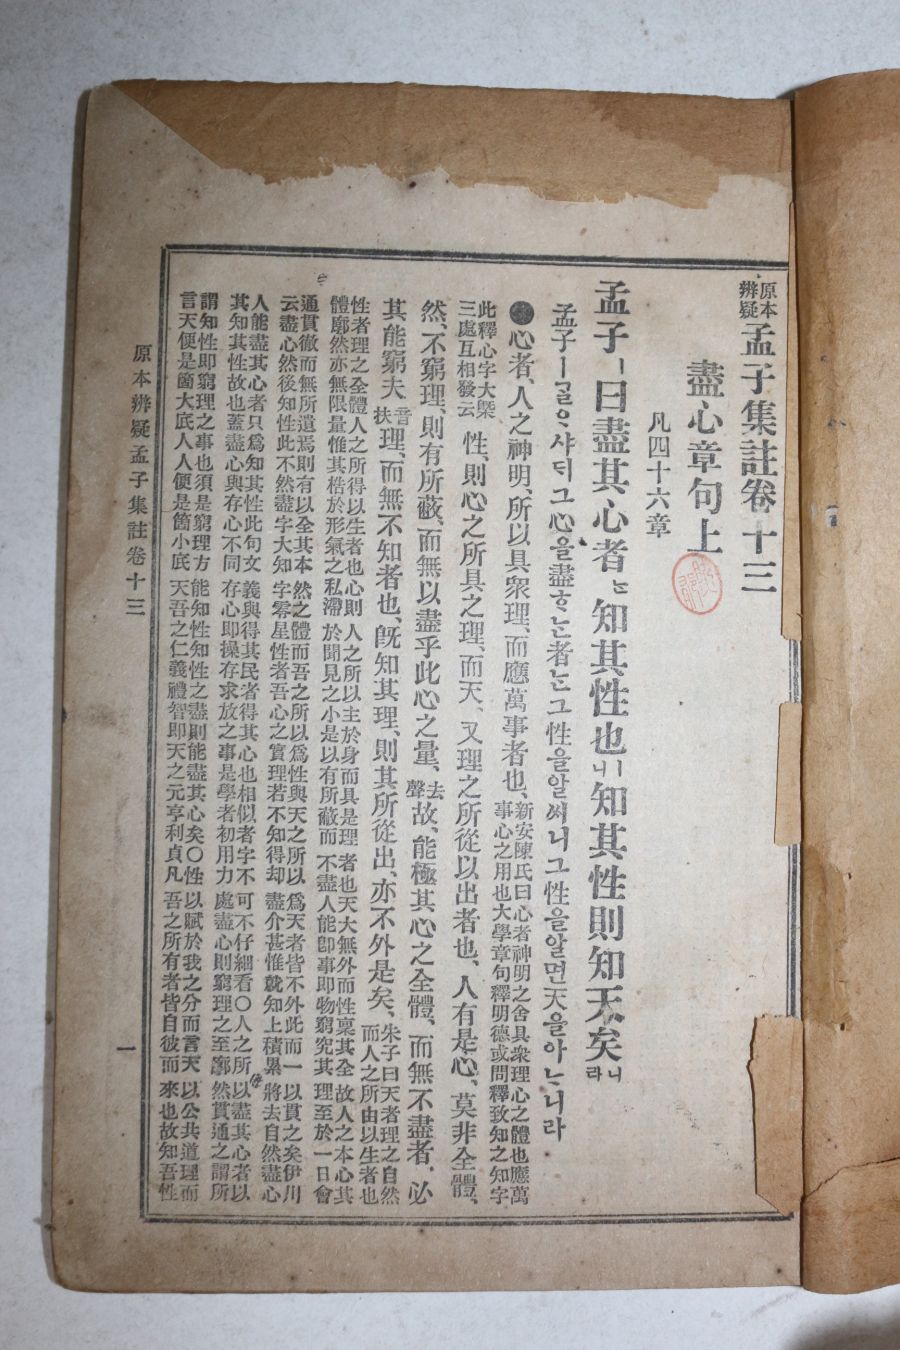 原本辨疑孟子集註卷十三
盡心章句上
凡四十六章
孟子ㅣ曰盡其心者ᄂᆞᆫ知其性也ㅣ니知其性則知天矣니라
孟子ㅣᄀᆞᆯᄋᆞ샤ᄃᆡ그心을盡ᄒᆞᄂᆞᆫ者ᄂᆞᆫ그性을알ᄊᆡ니그性을알면天을아ᄂᆞ니라
心者、人之神明、所以具衆理、而應萬事者也、
新安陳氏曰心者神明之舍具衆理心之體也應萬
事心之用也大學章句釋明德或問釋致知之知字
此釋心字大槩
三處互相發云
性、則心之所具之理、而天、又理之所從以出者也、人有是心、莫非全體、
然、不窮理、則有所蔽、而無以盡乎此心之量、去聲故、能極其心之全體、而無不盡者、必
其能窮夫音扶理、而無不知者也、旣知其理、則其所從出、亦不外是矣、
朱子曰天者理之自然
而人之所由以生者也
性者理之全體人之所得以生者也心則人之所以主於身而具是理者也天大無外而性稟其全故人之本心其
體廓然亦無限量惟其梏於形氣之私滯於聞見之小是以有所蔽而不盡人能卽事卽物窮究其理至於一日會
通貫徹而無所遺焉則有以全其本然之體而吾之所以爲性與天之所以爲天者皆不外此而一以貫之矣伊川
云盡心然後知性此不然盡字大知字零星性者吾心之實理若不知得却盡介甚惟就知上積累將去自然盡心
人能盡其心者只爲知其性此句文義與得其民者得其心也相似者字不可不仔細看○人之所以盡其心者以
其知其性故也蓋盡心與存心不同存心卽操存求放之事是學者初用力處盡心則窮理之至廓然貫通之謂所
謂知性卽窮理之事也須是窮理方能知性知性之盡則能盡其心矣○性以賦於我之分而言天以公共道理而
言天便是箇大底人人便是箇小底天吾之仁義禮智卽天之元亨利貞凡吾之所有者皆自彼而來也故知吾性
原本辨疑孟子集註卷十三
一